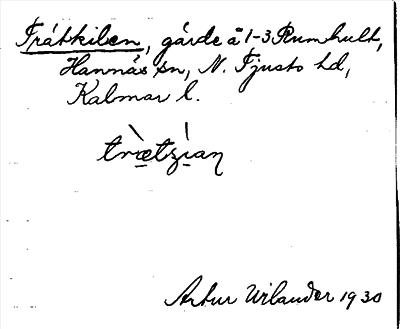 Trätkilen, gärde å 1-3 Rumhult,
Hannäs sn, N. Tjusts hd,
Kalmar l.
trætzian
Artur Wilander 1930